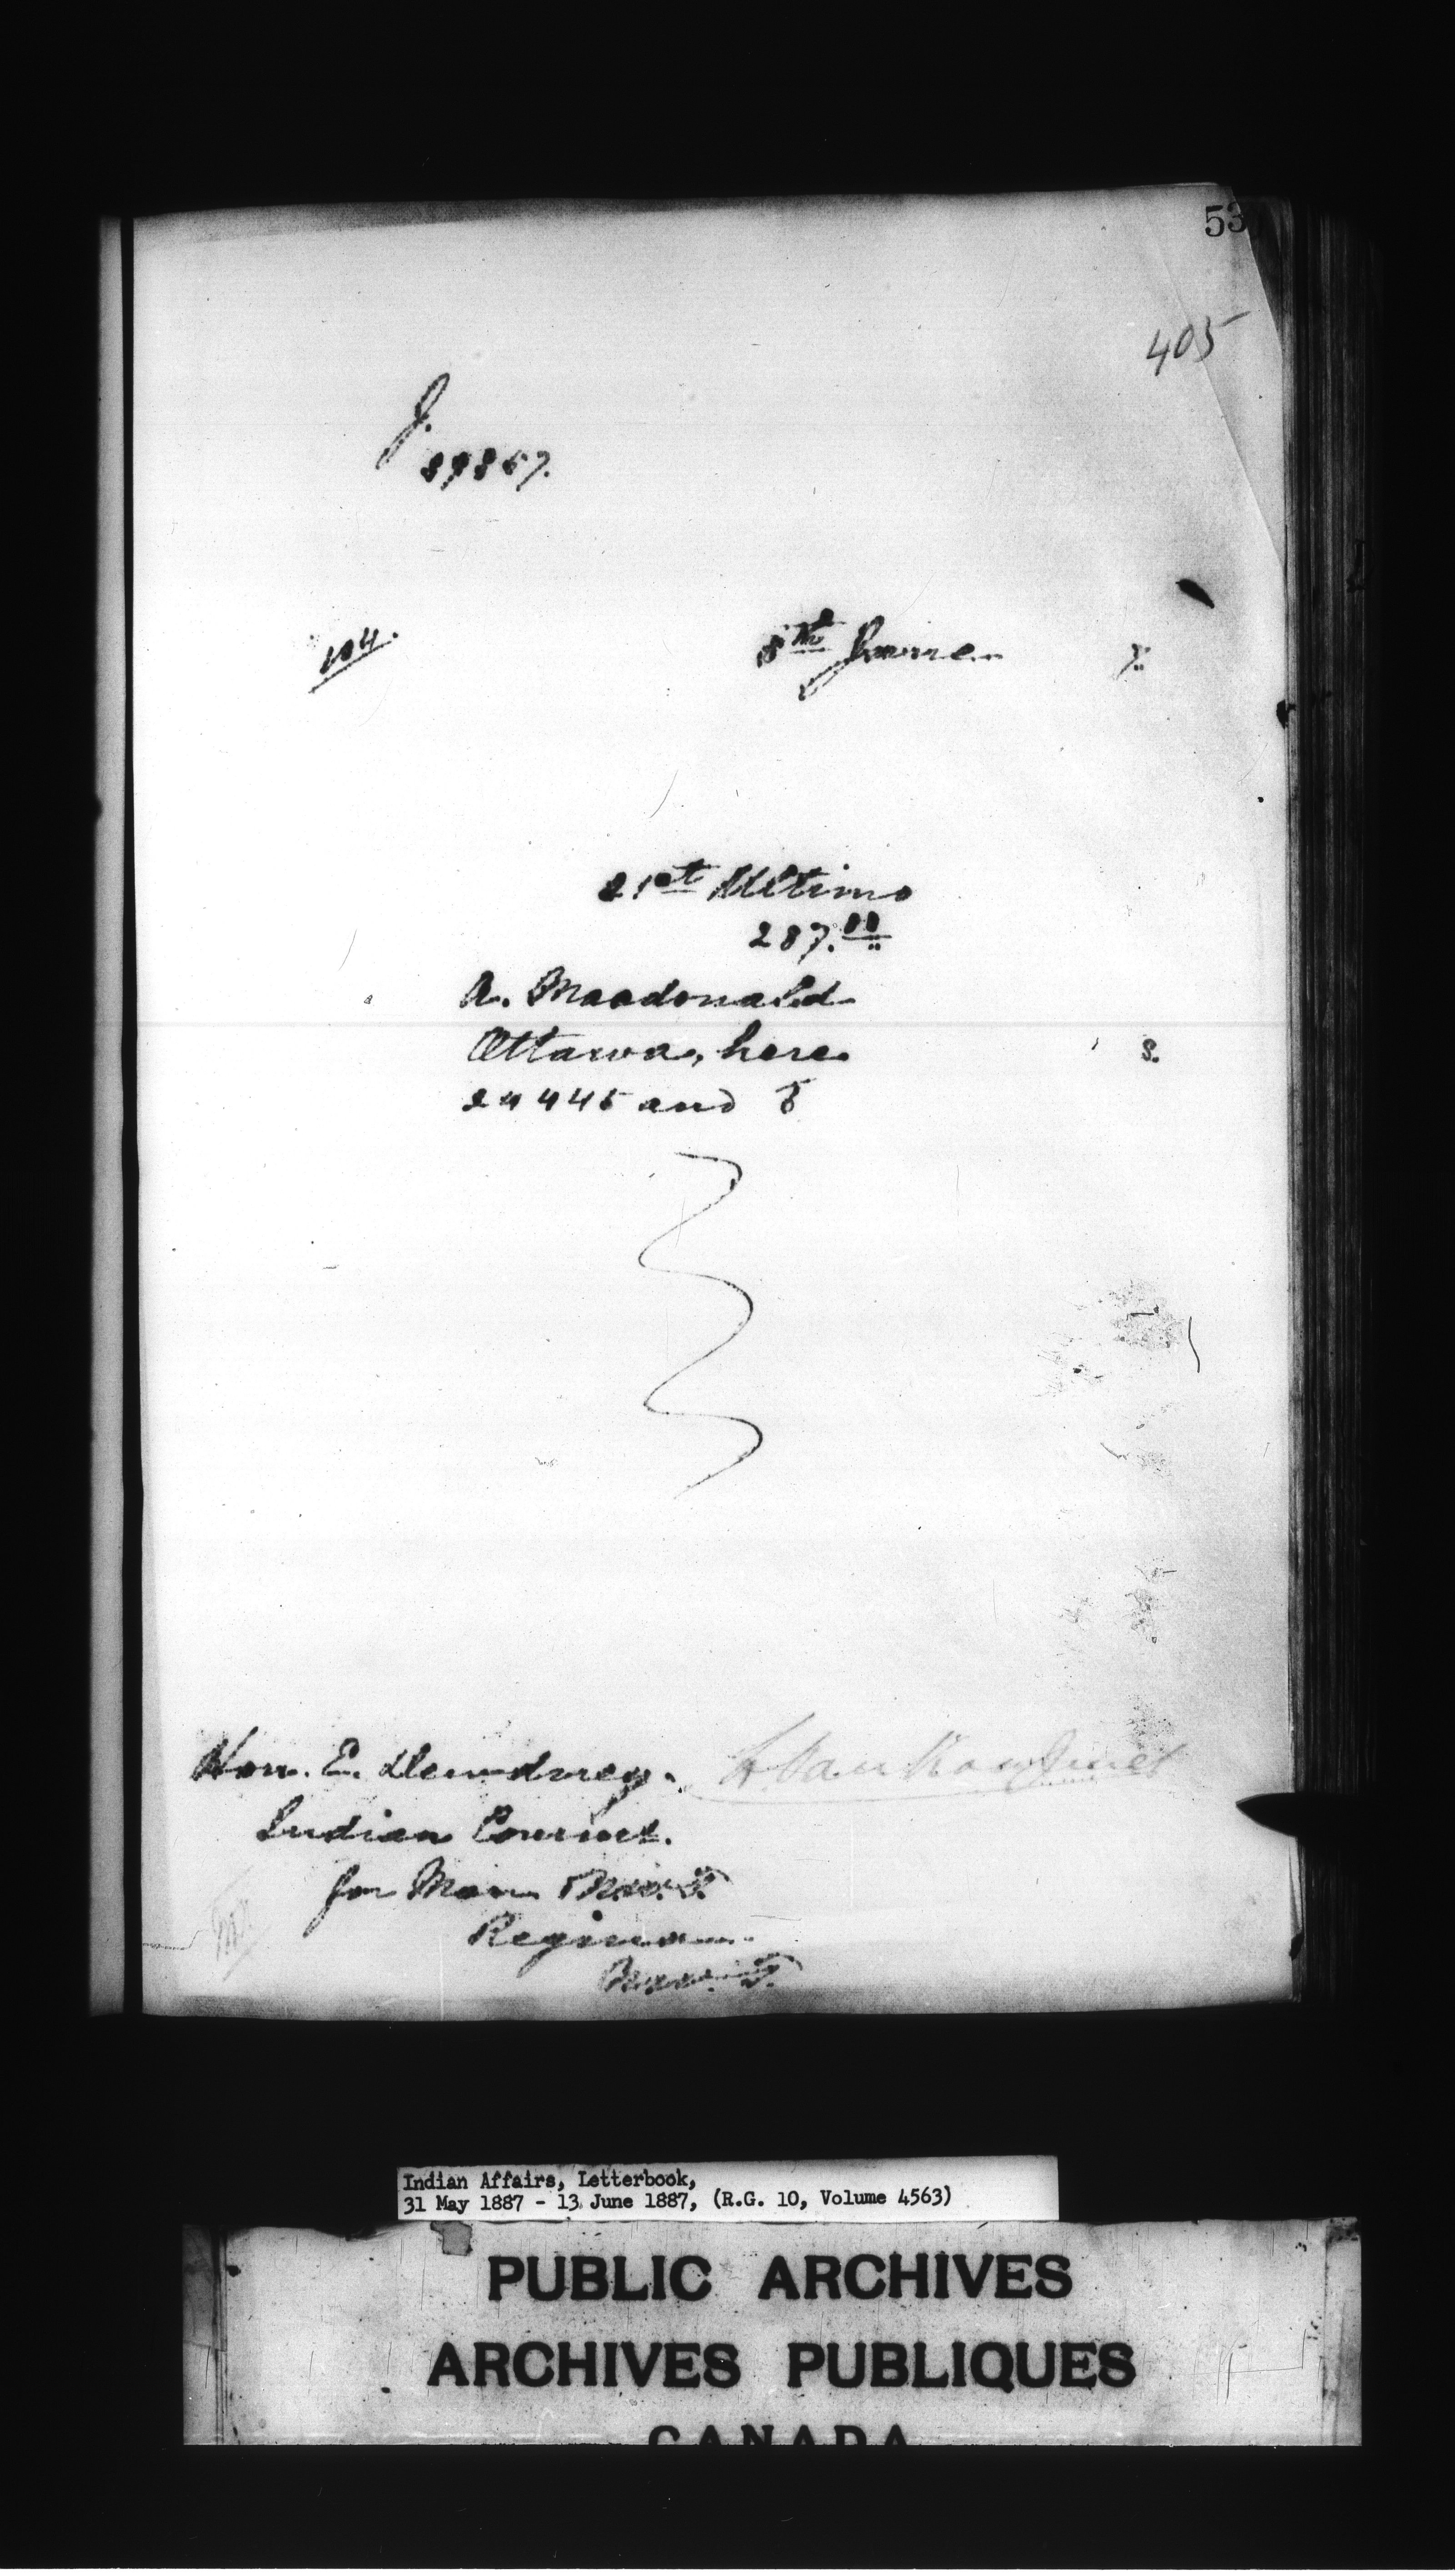 53
405
J.
39867.
104.
8th June 7.
21st Ultimo
287.00
A. Macdonald
Ottawa, here s.
24445 and 6
L. VanKoughnet
Hon. E. Dewdney.
Indian Commr.
for Man. & N.W.T.
Regina
N.W.T.
Indian Affairs, Letterbook,
31 May 1887 - 13 June 1887, (R.G. 10, Volume 4563)
PUBLIC ARCHIVES
ARCHIVES PUBLIQUES
CANADA